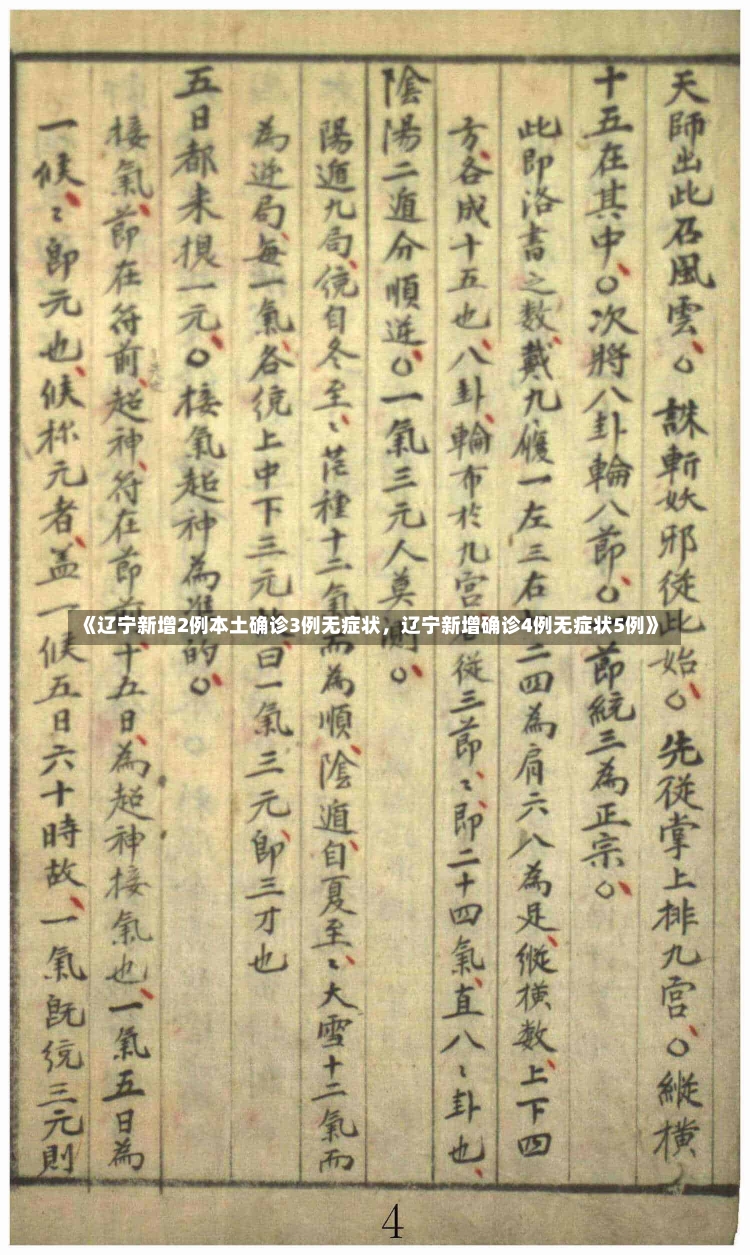 天師出此召風雲、○誅斬妖邪從此始○先從掌上排九宮、○縱橫
十五在其中、○次將八卦輪八節、○一節統三為正宗○
此即洛書之数、戴九履一左三右七二四為肩六八為足、縱横数、上下四
方、各成十五也、八卦、輪布於九宮各從三節、〻即二十四氣、直八〻卦也、
陰陽二遁分順逆○一氣三元人莫測○
陽遁九局、統自冬至、〻茫種十二氣而為順、陰遁自夏至、〻大雪十二氣而
為逆局、每一氣、各統上中下三元 曰一氣三元、即三才也
五日都来換一元、○接氣超神為準的○
接氣、節在符前、超神、符在節前、十五日、為超神接氣也、一氣五日為
一候、〻即元也、候称元者、盖一候五日六十時故、一氣既統三元則
《辽宁新增2例本土确诊3例无症状，辽宁新增确诊4例无症状5例》
4